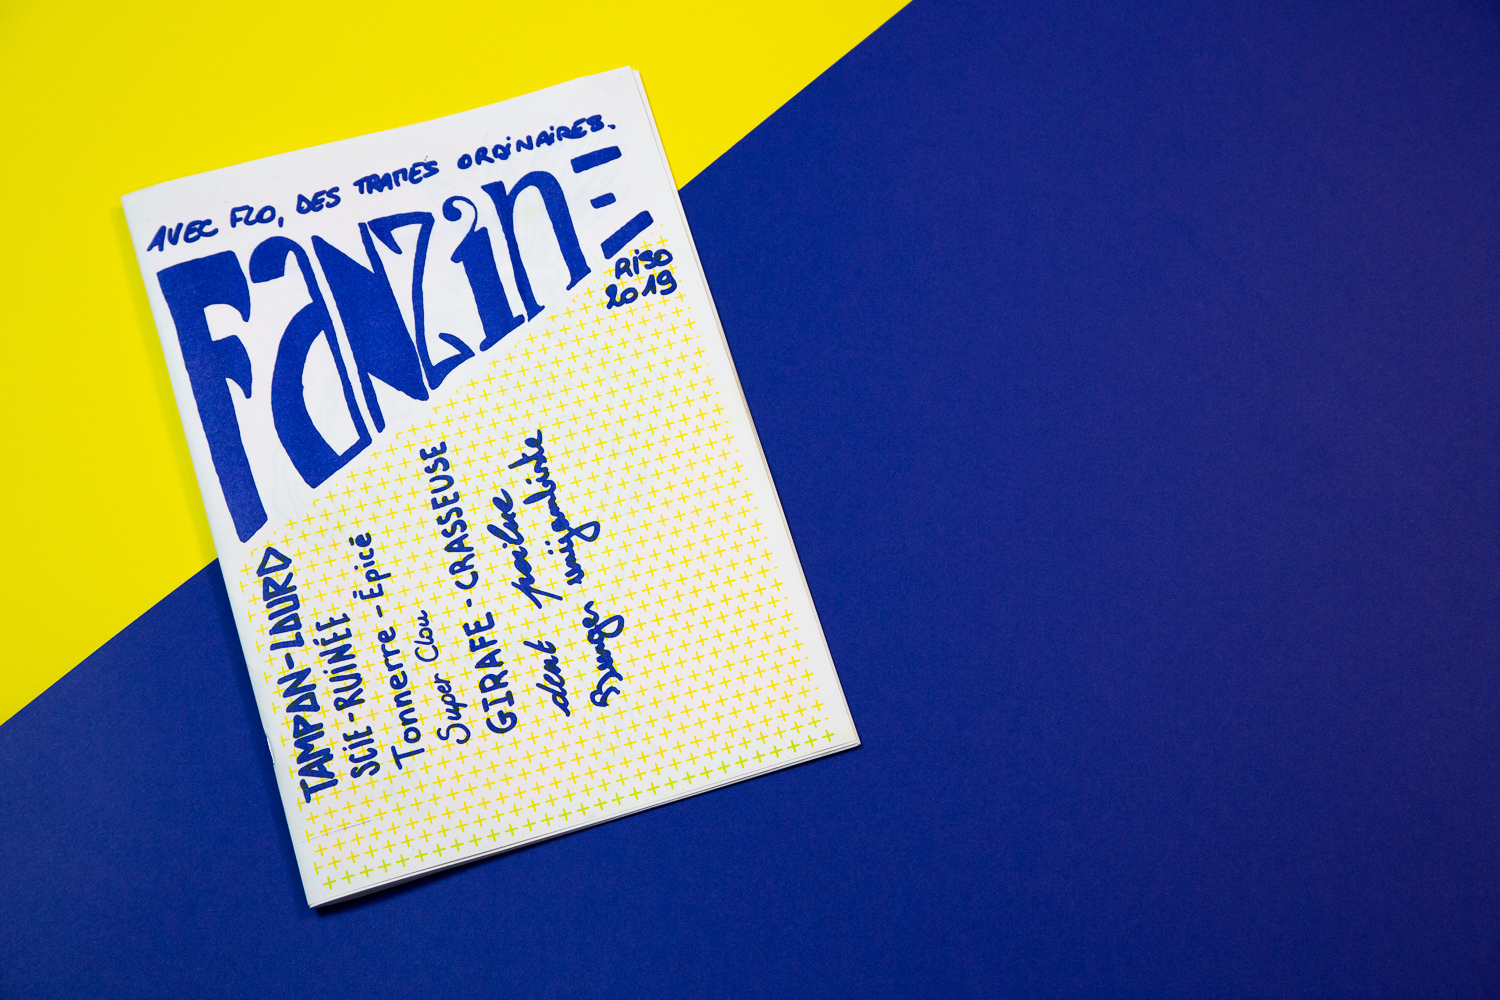 AVEC FLO, DES TRAMES ORDINAIRES.
FANZINE
RISO
2019
TAMPAN-LAURD
SCIE-RUINÉE
Tonnerre-Épicé
Super Clou
GIRAFE-CRASSEUSE
dent poilue